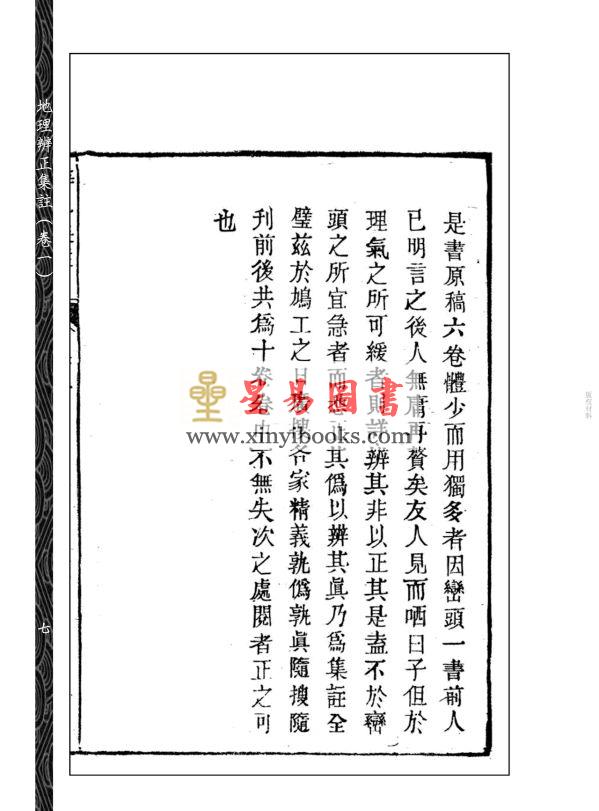 是書原稿六卷體少而用獨多者因巒頭一書前人
已明言之後人無庸再贅矣友人見而哂曰子但於
理氣之所可緩者則詳辨其非以正其是盍不於巒
頭之所宜急者而悉正其僞以辨其眞乃爲集註全
璧茲於鳩工之日廣搜各家精義孰僞孰眞隨搜隨
刋前後共爲十卷卷中不無失次之處閱者正之可
也
星易圖書
www.xinyibooks.com
地理辨正集註（卷一）
七
版權材料